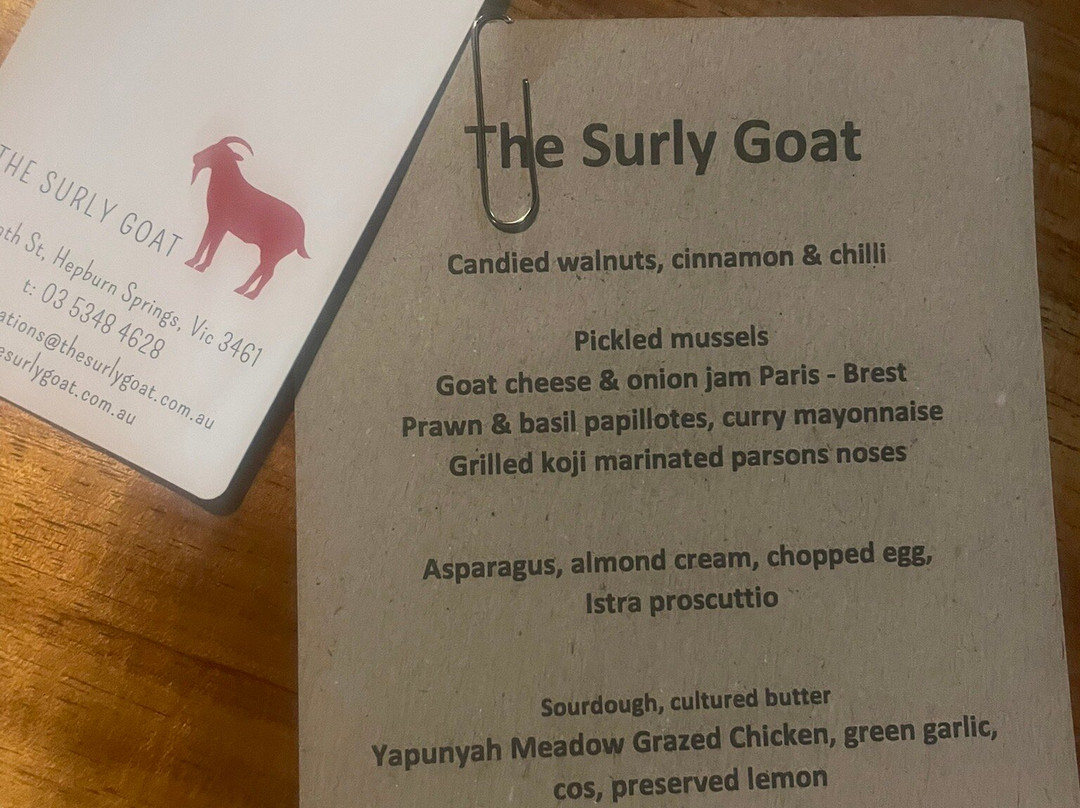 THE SURLY GOAT
St, Hepburn Springs, Vic 3461
t: 03 5348 4628
ations@thesurlygoat.com.au
esurlygoat.com.au
The Surly Goat
Candied walnuts, cinnamon & chilli
Pickled mussels
Goat cheese & onion jam Paris - Brest
Prawn & basil papillotes, curry mayonnaise
Grilled koji marinated parsons noses
Asparagus, almond cream, chopped egg,
Istra proscuttio
Sourdough, cultured butter
Yapunyah Meadow Grazed Chicken, green garlic,
cos, preserved lemon